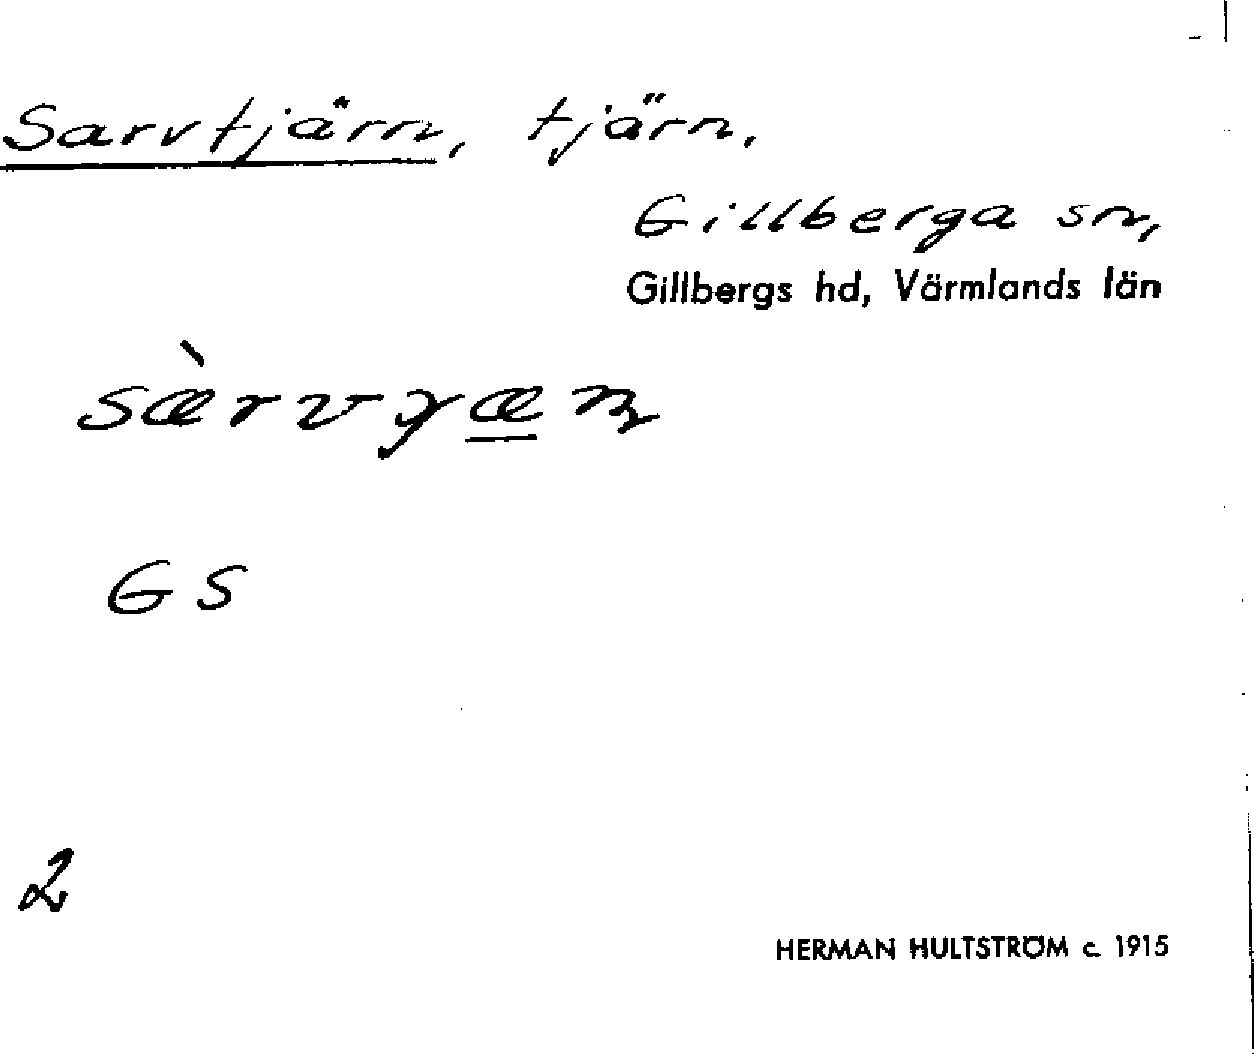 Sarvtjärn, tjärn,
Gillberga sn,
Gillbergs hd, Värmlands län
G S
2
HERMAN HULTSTRÖM c. 1915